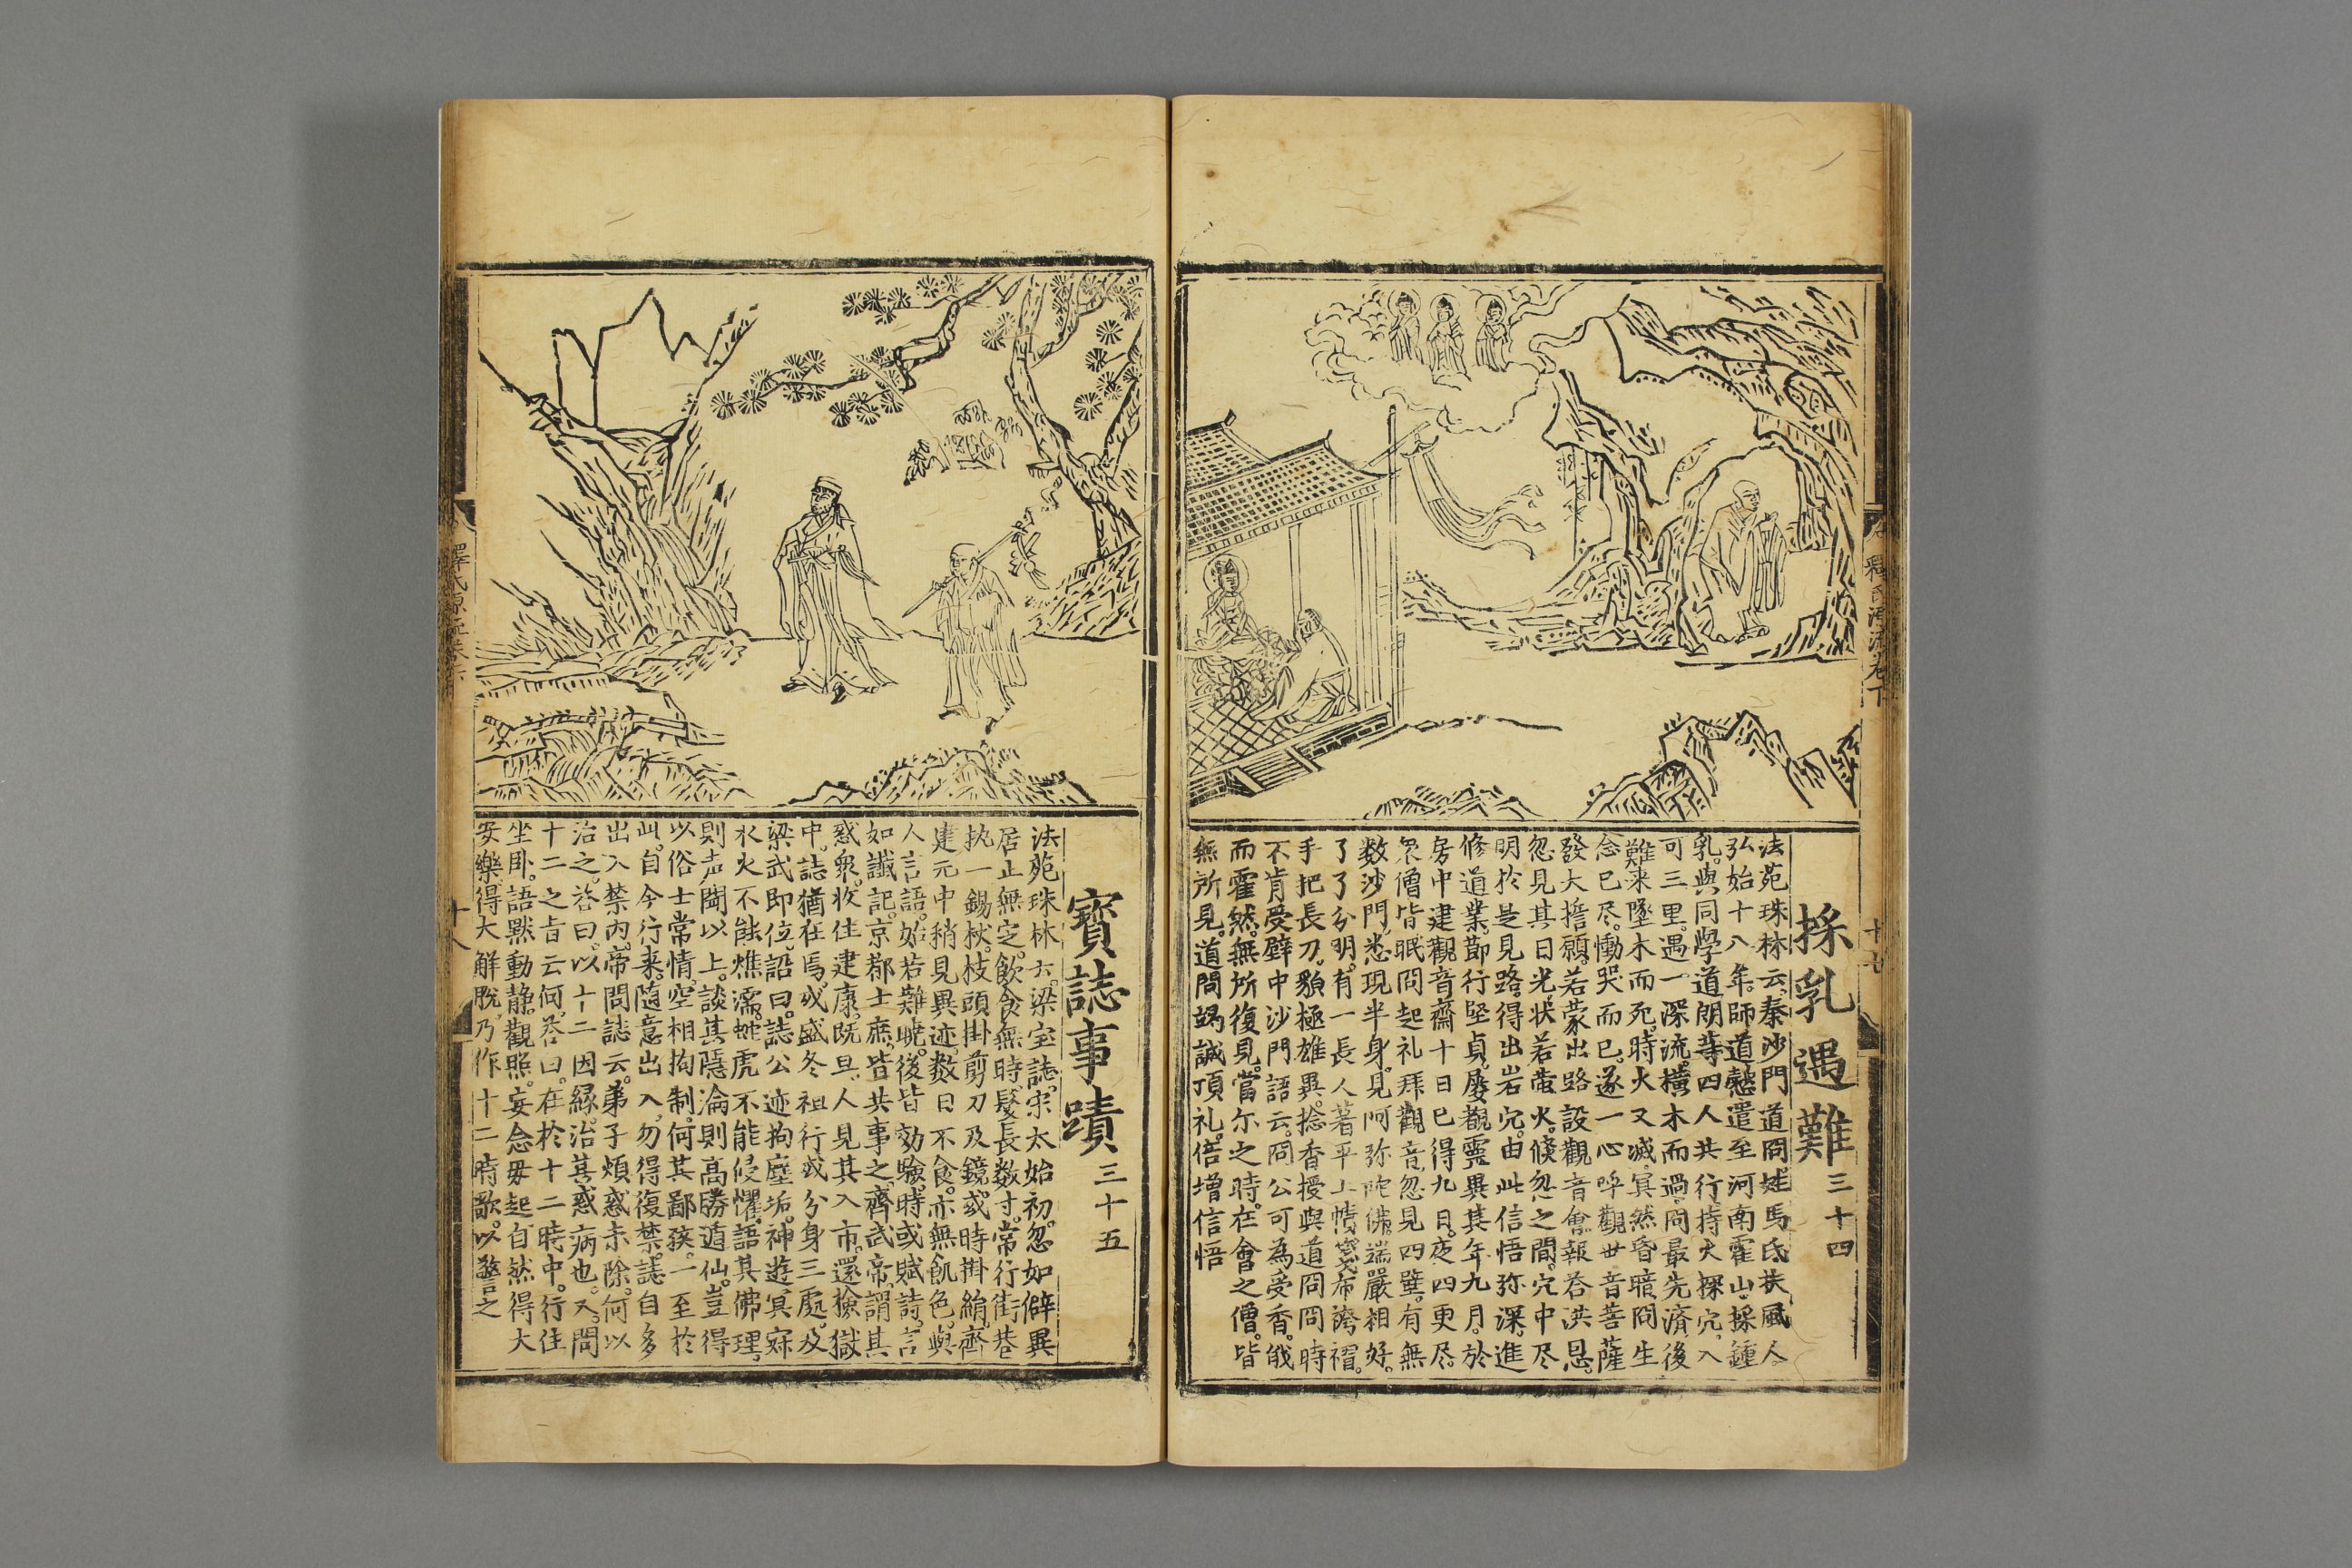 採乳遇難三十四
法苑珠林云。秦沙門道冏。姓馬氏。扶風人。
弘始十八年。師道懿遣至河南霍山。採鍾
乳。與同學道朗等四人共行。持火探穴。入
可三里。遇一深流。橫木而過。冏最先濟。後
難来墜木而死。時火又滅。冥然昏暗。冏生
念已尽。慟哭而已。遂一心呼觀世音菩薩
發大擔願。若蒙出路。設觀音會。報荅洪恩。
忽見其日光。状若螢火。倏忽之間。穴中尽
明。於是見路。得出岩穴。由此信悟弥深。進
修道業。節行堅貞。屡覩靈異。其年九月。於
房中建觀音齋。十日已得九日。夜四更尽。
衆僧皆眠。冏起礼拜觀音。忽見四壁。有無
数沙門。悉現半身。見阿弥陀佛。端嚴相好。
了了分明。有一長人著平上幘。箋布袴褶。
手把長刀。貌極雄異。捻香授與道冏。冏時
不肯受。壁中沙門語云。冏公可為受香。俄
而霍然。無所復見。當尔之時。在會之僧。皆
無所見。道冏竭誠頂礼。倍增信悟
釋氏源流卷下
十七
寳誌事蹟三十五
法苑珠林云。梁宝誌。宋太始初。忽如僻異
居止無定。飲食無時。髮長数寸。常行街巷
执一錫杖。枝頭掛剪刀及鏡。或時掛絹。齊
建元中稍見異迹。数日不食。亦無飢色。與
人言語。始若難曉。後皆効驗。時或賦詩。言
如讖記。京都士庶。皆共事之。齊武帝。謂其
惑衆。收住建康。既旦。人見其入市。還撿獄
中。誌猶在焉。或盛冬袒行。或分身三處。及
梁武即位。詔曰。誌公迹拘塵垢。神遊冥寂
水火不能燋濡。虵虎不能侵懼。語其佛理。
則声聞以上。談其隱淪則高勝遁仙。豈得
以俗士常情。空相拘制。何其鄙狹。一至於
此。自今行来。随意出入。勿得復禁。誌自多
出入禁内。帝問誌云。弟子煩惑未除。何以
治之。荅曰。以十二因緣。治其惑病也。又問
十二之旨云何。荅曰。在於十二時中。行住
坐卧。語黙動静。觀照。妄念毋起。自然得大
安樂。得大解脱。乃作十二時歌。以警之
十八